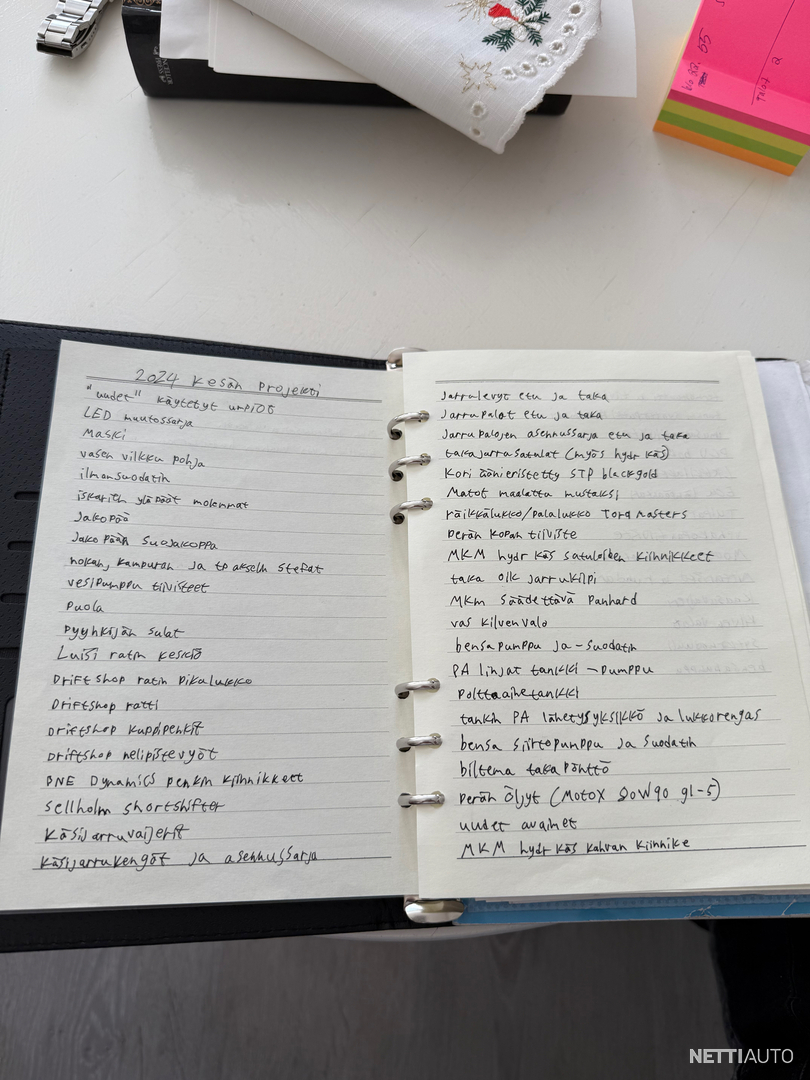 2024 kesän projekti
"uudet" käytetyt umpiot
LED muutossarja
Maski
vasen vilkku pohja
ilmansuodatin
iskarien yläpäät molemmat
Jakopää
Jako pään suojakoppa
nokan, kampuran ja tp akselin stefat
vesipumppu tiivisteet
puola
pyyhkijän sulat
Luisi ratin keskiö
Driftshop ratin pikalukko
Driftshop ratti
Driftshop kuppipenkit
Driftshop nelipistevyöt
BNE Dynamics penkin kiinnikkeet
Sellholm shortshifter
Käsijarruvaijerit
Käsijarrukengät ja asennussarja
Jarrulevyt etu ja taka
Jarrupalat etu ja taka
Jarrupalojen asennussarja etu ja taka
takajarrusatulat (myös hydr käs)
Kori äänieristetty STP blackgold
Matot maalattu mustaksi
räikkälukko/palalukko Torq Masters
perän kopan tiiviste
MKM hydr käs satuloiden kiinnikkeet
taka oik jarrukilpi
MKM säädettävä Panhard
vas kilvenvalo
bensapumppu ja -suodatin
PA linjat tankki - pumppu
polttoainetankki
tankin PA lähetysyksikkö ja lukkorengas
bensa siirtopumppu ja suodatin
biltema takapönttö
perän öljyt (Motox 80W90 gl-5)
uudet avaimet
MKM hydr käs kahvan kiinnike
NETTIAUTO